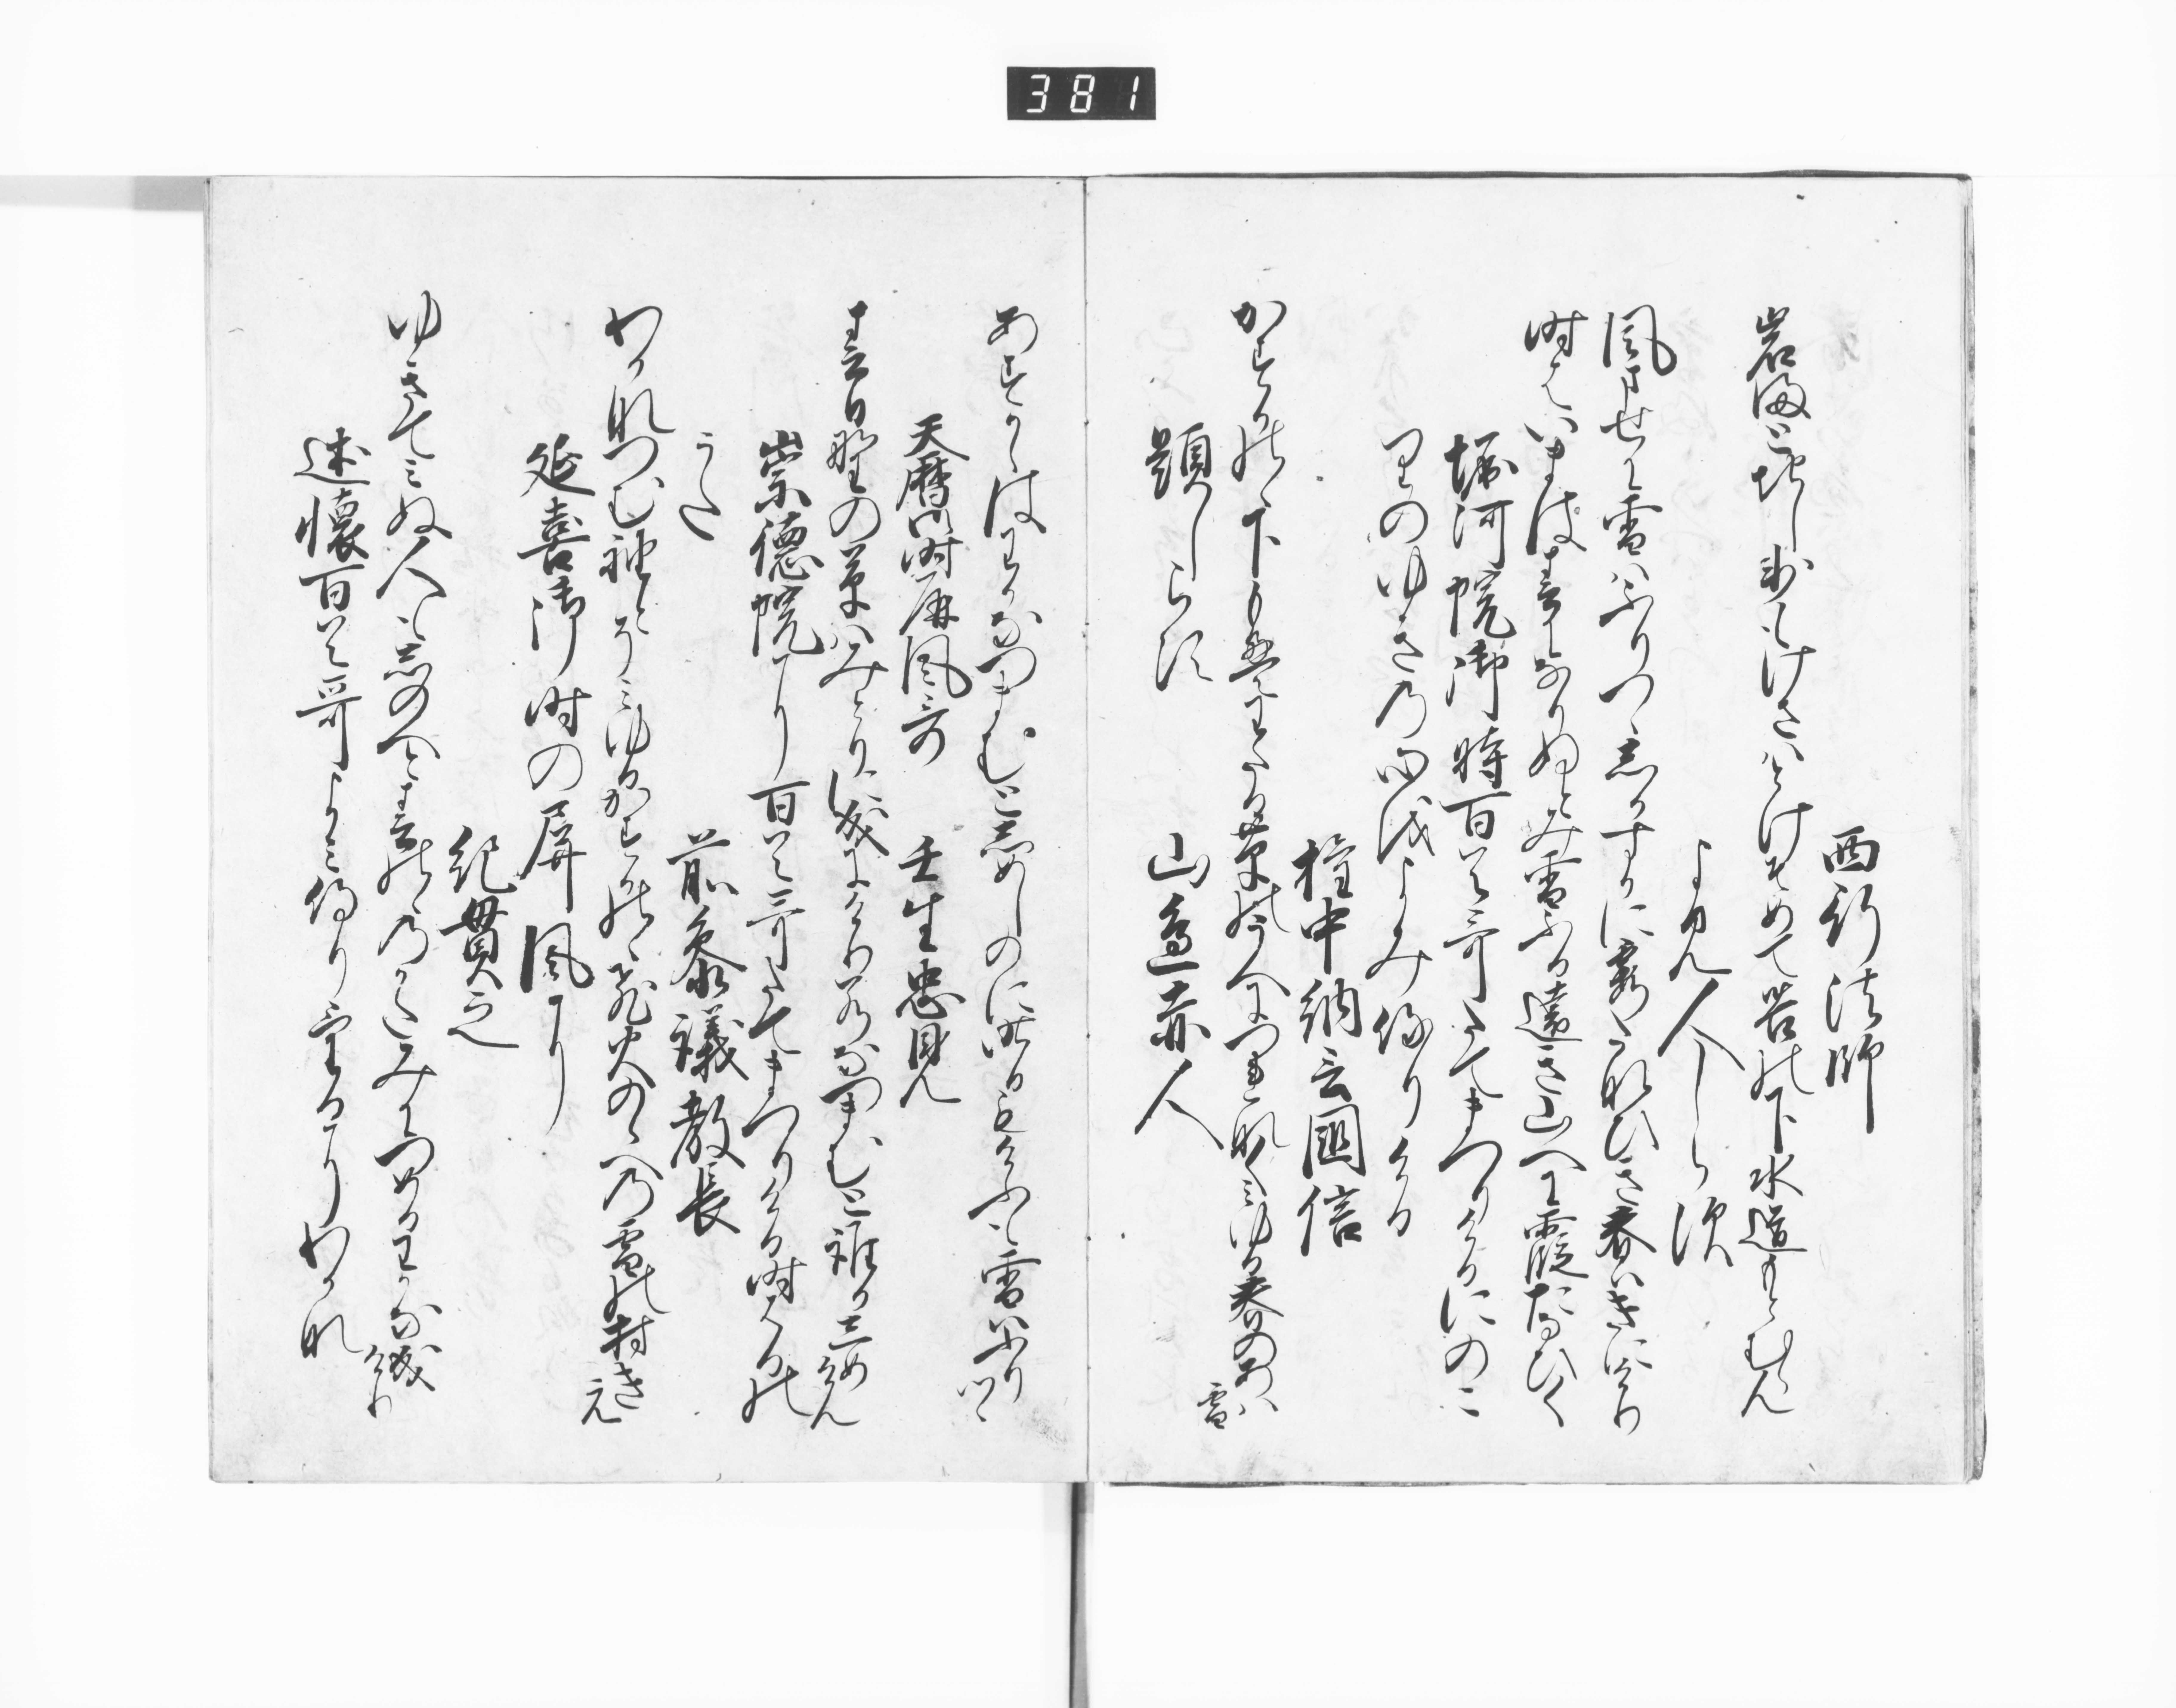 381
西行法師
岩間とちし氷もけさはとけそめて苔の下水道もとむらん
よみ人しらす
風ませに雪はふりつゝしかすかに霞たなひき春はきにけり
時はいまは春になりぬとみ雪ふる遠き山へに霞たなひく
堀河院御時百首哥たてまつりけるにのこ
りのゆきの心をよみ侍りける
権中納言国信
かすか野の下もえわたる草の上につれなくみゆる春のあは雪
題しらす
山邊赤人
あすからはわかなつまむとしめしのに昨日もけふも雪はふりつゝ
天暦御時屏風哥
壬生忠見
春日野の草はみとりに成にけりわかなつまむと誰かしめけん
崇徳院に百首哥たてまつりける時はるの
うた
前参議教長
わかなつむ袖とそみゆるかすか野の飛火のゝへの雪の村きえ
延喜御時の屏風に
紀貫之
ゆきてみぬ人もしのへと春の野のかたみにつめるわかな成けり
述懐百首哥よみ侍りけるにわかな